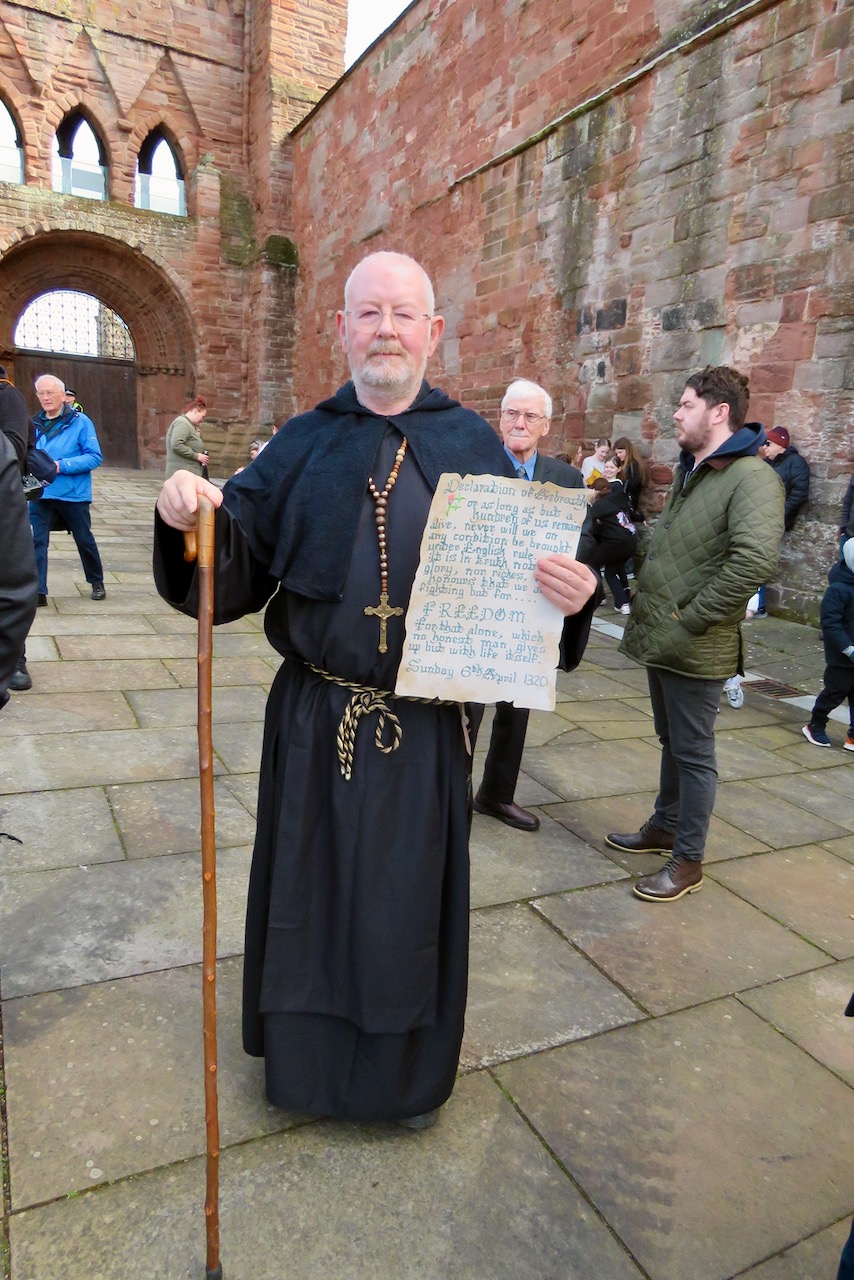 Declaration of Arbroath
or as long as but a
hundred of us remain
alive, never will we on
any condition be brought
under English rule.
It is in truth not
glory, nor riches,
honours that we are
fighting but for....
FREEDOM
for that alone, which
no honest man gives
up but with life itself.
Sunday 6th April 1320